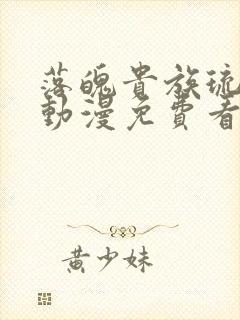 落魄貴族琉
動漫免費看
黃少妹